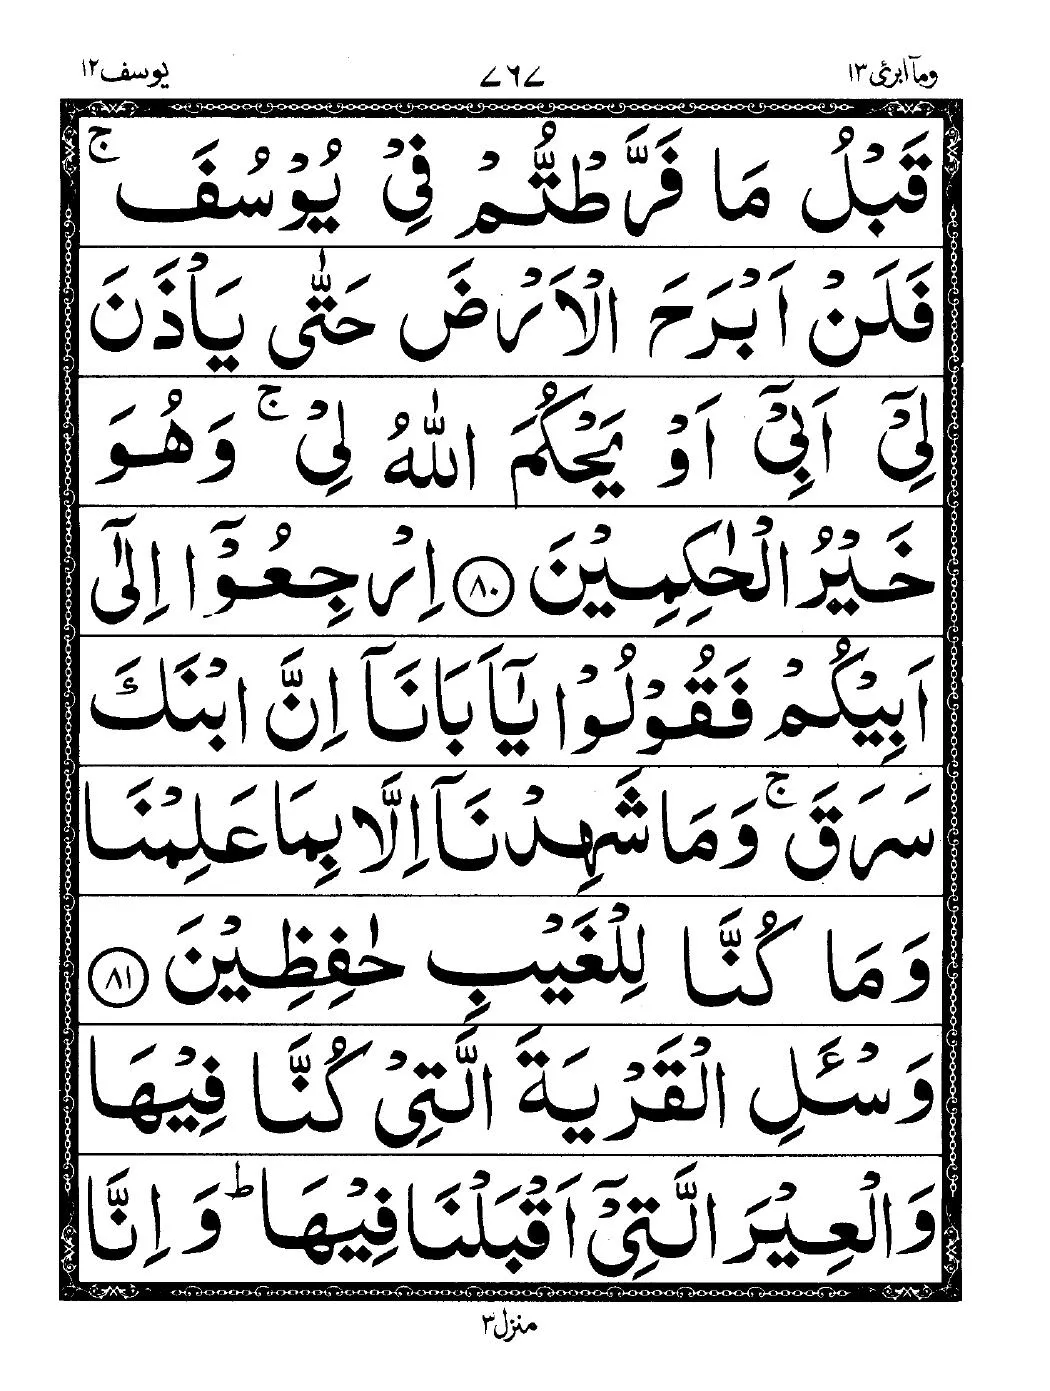 وما ابرئ ١٣ ٧٦٧ يوسف ١٢
قَبْلُ مَا فَرَّطْتُّمْ فِيْ يُوْسُفَ ۚ
فَلَنْ اَبْرَحَ الْاَرْضَ حَتّٰى يَاْذَنَ
لِيْۤ اَبِيْۤ اَوْ يَحْكُمَ اللّٰهُ لِيْ ۚ وَهُوَ
خَيْرُ الْحٰكِمِيْنَ ٨٠ اِرْجِعُوْۤا اِلٰۤى
اَبِيْكُمْ فَقُوْلُوْا يٰۤاَبَانَاۤ اِنَّ ابْنَكَ
سَرَقَ ۚ وَمَا شَهِدْنَاۤ اِلَّا بِمَا عَلِمْنَا
وَمَا كُنَّا لِلْغَيْبِ حٰفِظِيْنَ ٨١
وَسْـَٔلِ الْقَرْيَةَ الَّتِيْ كُنَّا فِيْهَا
وَالْعِيْرَ الَّتِيْۤ اَقْبَلْنَا فِيْهَا ؕ وَاِنَّا
منزل ٣